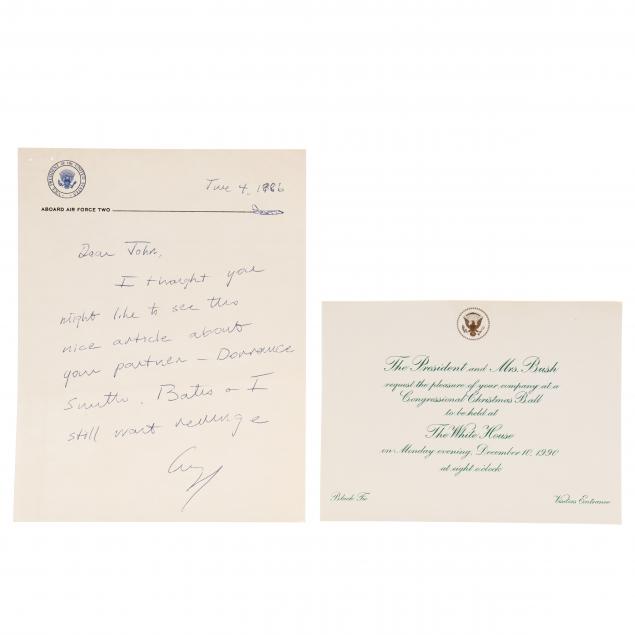 June 4, 1986
ABOARD AIR FORCE TWO
Dear John,
I thought you
might like to see this
nice article about
your partner - Dorrance
Smith. Bates & I
still want revenge
The President and Mrs. Bush
request the pleasure of your company at a
Congressional Christmas Ball
to be held at
The White House
on Monday evening, December 10, 1990
at eight o'clock
Black Tie
Visitors Entrance